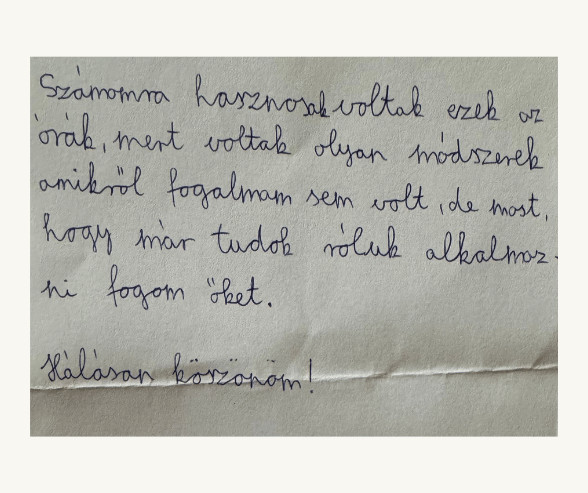 Számomra hasznosak voltak ezek az
órák, mert voltak olyan módszerek
amikről fogalmam sem volt, de most,
hogy már tudok róluk alkalmaz-
ni fogom őket.
Hálásan köszönöm!